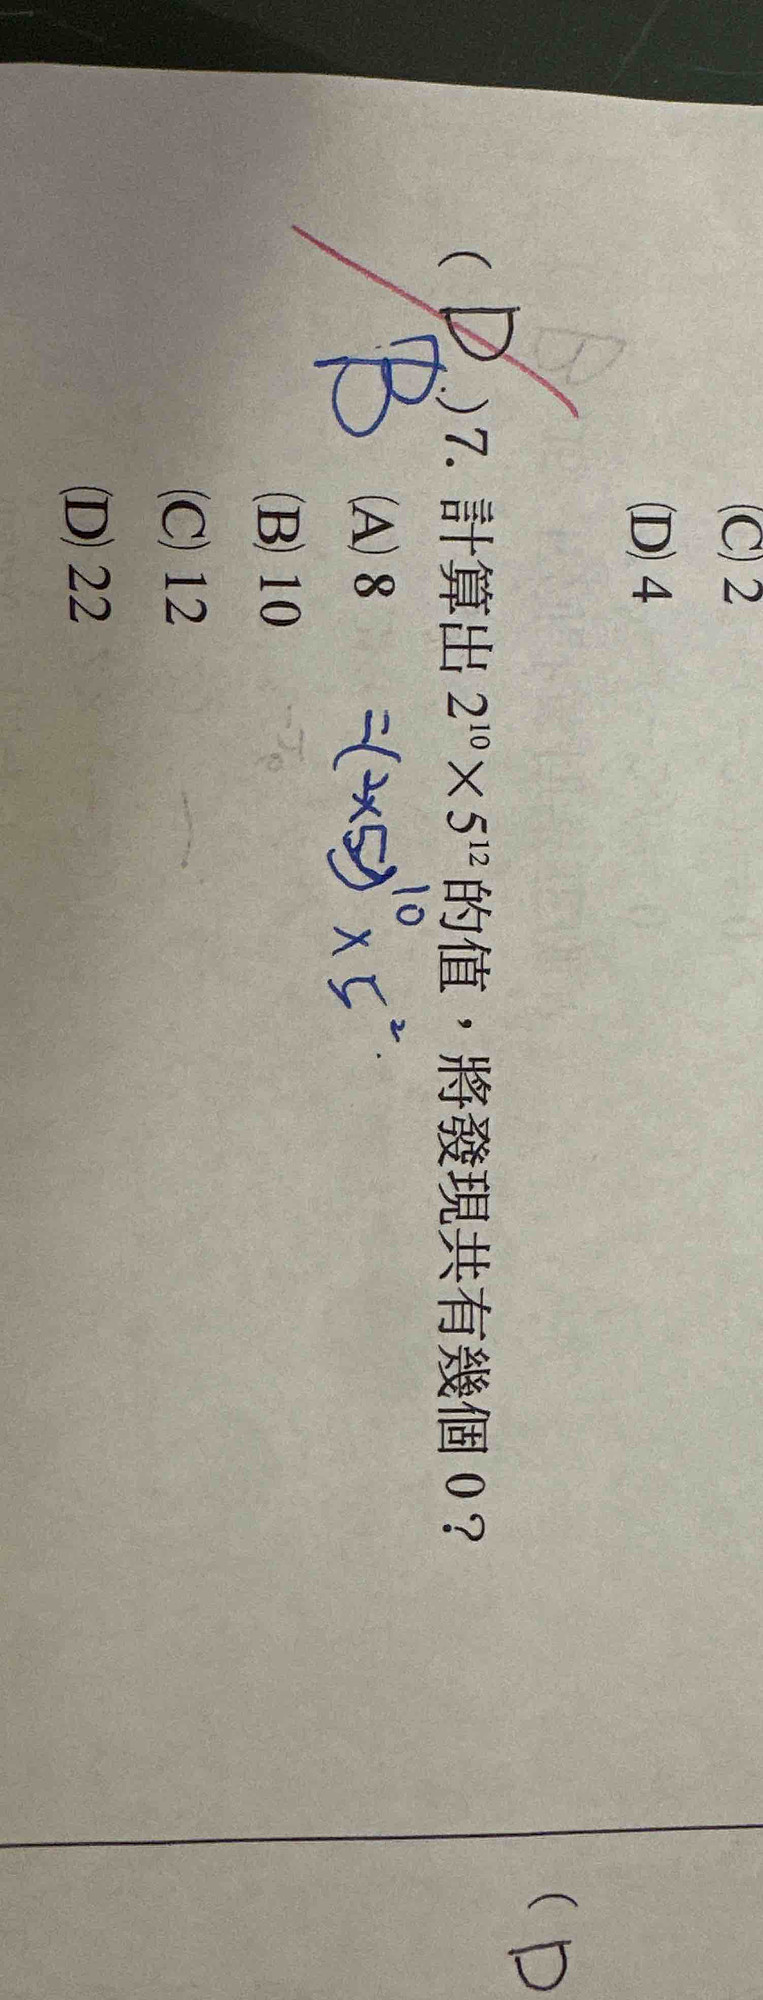 (C) 2
(D) 4
( D ) 7. 計算出 2¹⁰×5¹² 的值，將發現共有幾個 0？
B
(A) 8
=(2×5)¹⁰ × 5²
(B) 10
(C) 12
(D) 22
( D